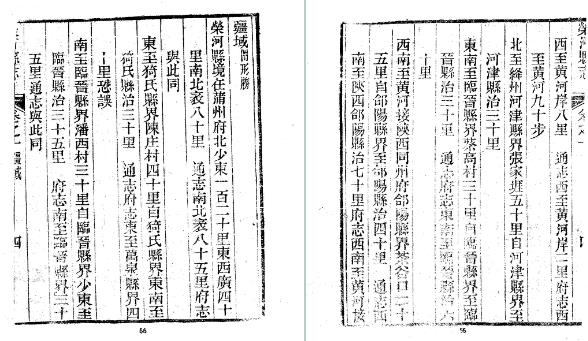 疆域附形勝
榮河縣境在蒲州府北少東一百二十里東西廣四十
里南北袤八十里 通志南北袤八十五里府志
與此同
東至猗氏縣界陳庄村四十里自猗氏縣界東南至
猗氏縣治三十里 通志府志東至萬泉縣界四
十里恐誤
南至臨晉縣界潘西村三十里自臨晉縣界少東至
臨晉縣治三十五里 府志南至臨晉縣界三十
五里通志與此同
疆域
四
西至黃河岸八里 通志西至黃河岸二里府志西
至黃河九十步
北至絳州河津縣界張家莊五十里自河津縣界至
河津縣治三十里
東南至臨晉縣界 高村三十里自臨晉縣界至臨
晉縣治三十里 通志府志東南至臨晉縣治六
十里
西南至黃河接陝西同州府郃陽縣界茶谷口二十
五里自郃陽縣界至郃陽縣治四十里 通志西
南至陝西郃陽縣治七十里府志西南至黃河接
榮河縣志
66